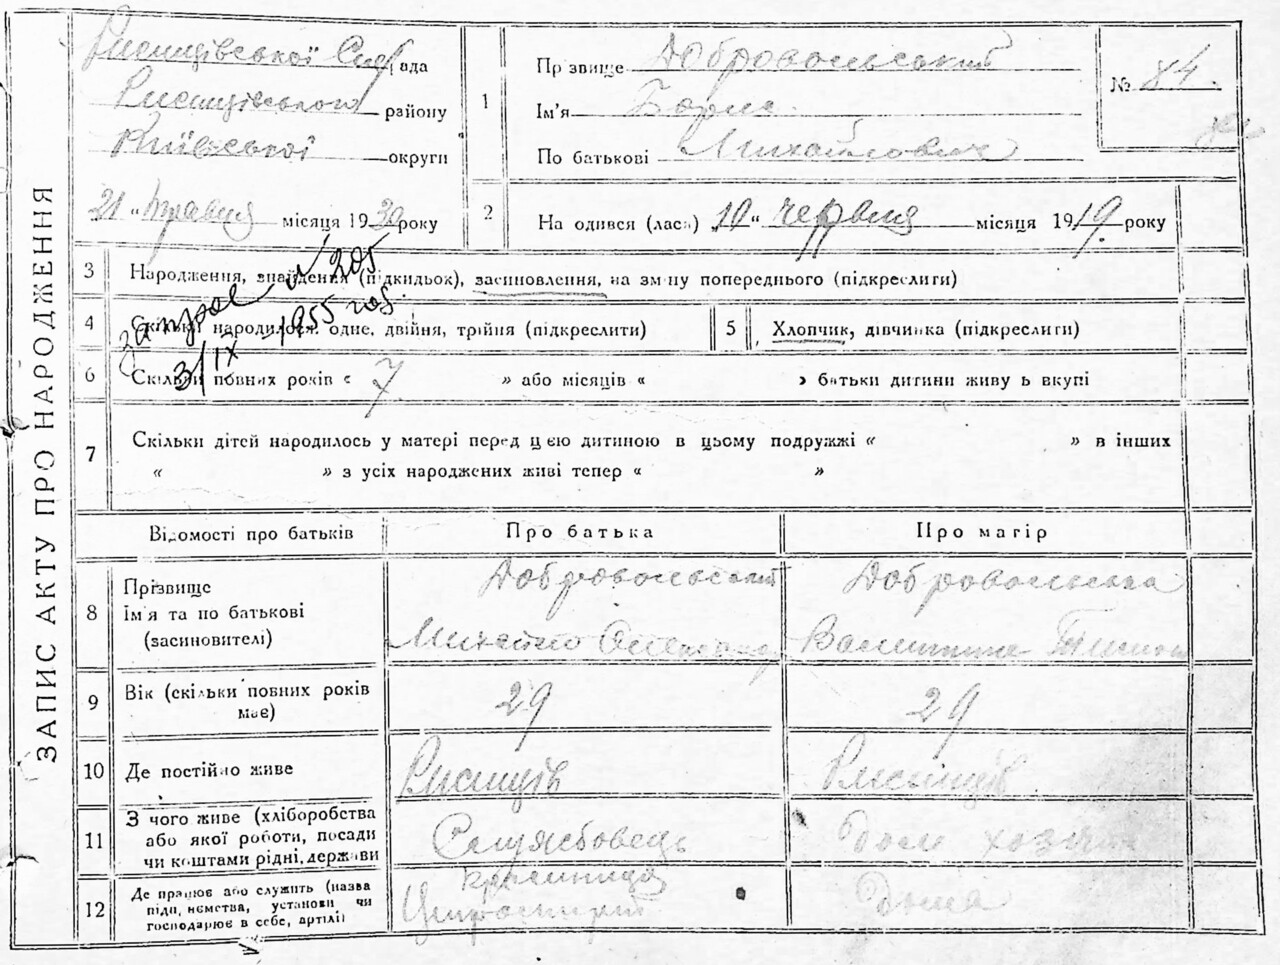 ЗАПИС АКТУ ПРО НАРОДЖЕННЯ
Ржищівської Сіль ада
Ржищівського району
Київської округи
21 " травня місяця 1930 року
1
Пр звище Добровольський
Ім'я Борис
По батькові Михайлович
№ 84.
2 На одився (лась) 10 " червня місяця 1919. року
3 Народження, знайдення (підкидьок), засиновлення, на зміну попереднього (підкреслити)
запрос № 205
3/IX - 1955 год
4 Скільки народилося: одне, двійня, трійня (підкреслити) 5 Хлопчик, дівчинка (підкреслити)
6 Скільки повних років « 7 » або місяців « » батьки дитини живу ь вкупі
7 Скільки дітей народилось у матері перед цією дитиною в цьому подружжі « » в інших
« » з усіх народжених живі тепер « »
Відомості про батьків Про батька Про матір
8 Прізвище
Ім'я та по батькові
(засиновителі)
Добровольський
Михайло
Добровольська
Валентина
9 Вік (скільки повних років має) 29 29
10 Де постійно живе Ржищів Ржищів
11 З чого живе (хліборобства
або якої роботи, посади
чи коштами рідні, держави
Службовець
Дом хозяйка
12 Де працює або служить (назва
підп, иємства, установи чи
господарює в себе, артілі)
крамниця
Дома